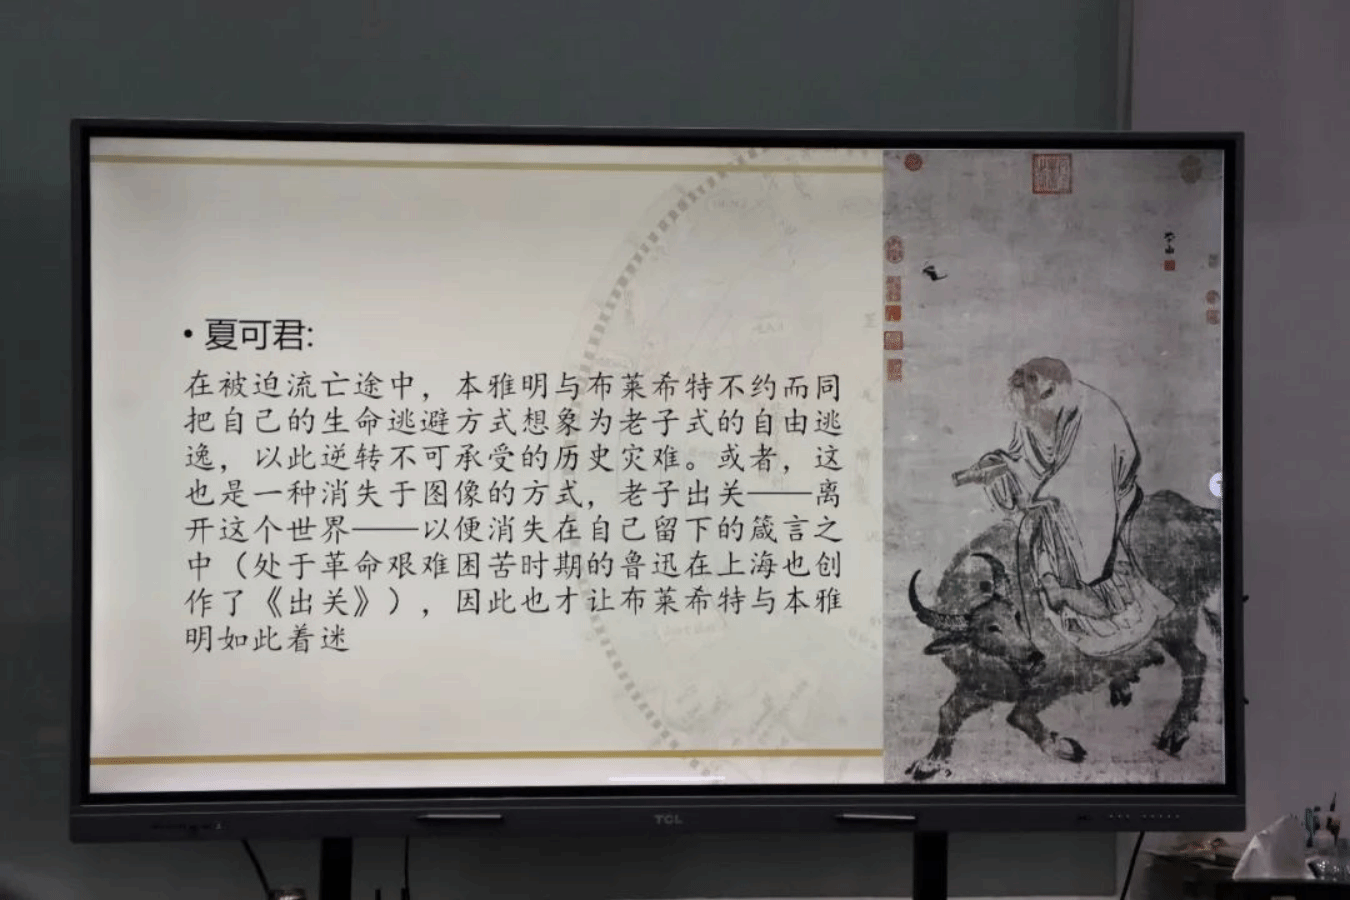 • 夏可君:
在被迫流亡途中，本雅明与布莱希特不约而同
把自己的生命逃避方式想象为老子式的自由逃
逸，以此逆转不可承受的历史灾难。或者，这
也是一种消失于图像的方式，老子出关——离
开这个世界——以便消失在自己留下的箴言之
中（处于革命艰难困苦时期的鲁迅在上海也创
作了《出关》），因此也才让布莱希特与本雅
明如此着迷
TCL